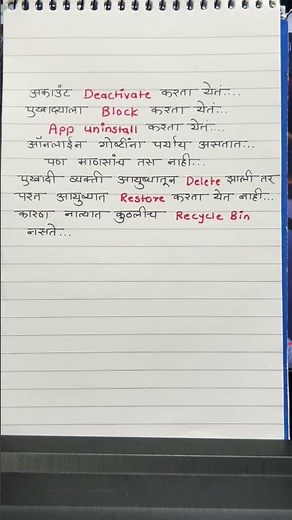 अकाउंट Deactivate करता येतं...
एखाद्याला Block करता येतं...
App uninstall करता येतं...
ऑनलाईन गोष्टींना पर्याय असतात...
पण माणसांच तस नाही...
एखादी व्यक्ती आयुष्यातून Delete झाली तर
परत आयुष्यात Restore करता येत नाही...
कारण नात्यात कुठलीच Recycle Bin
नसते...